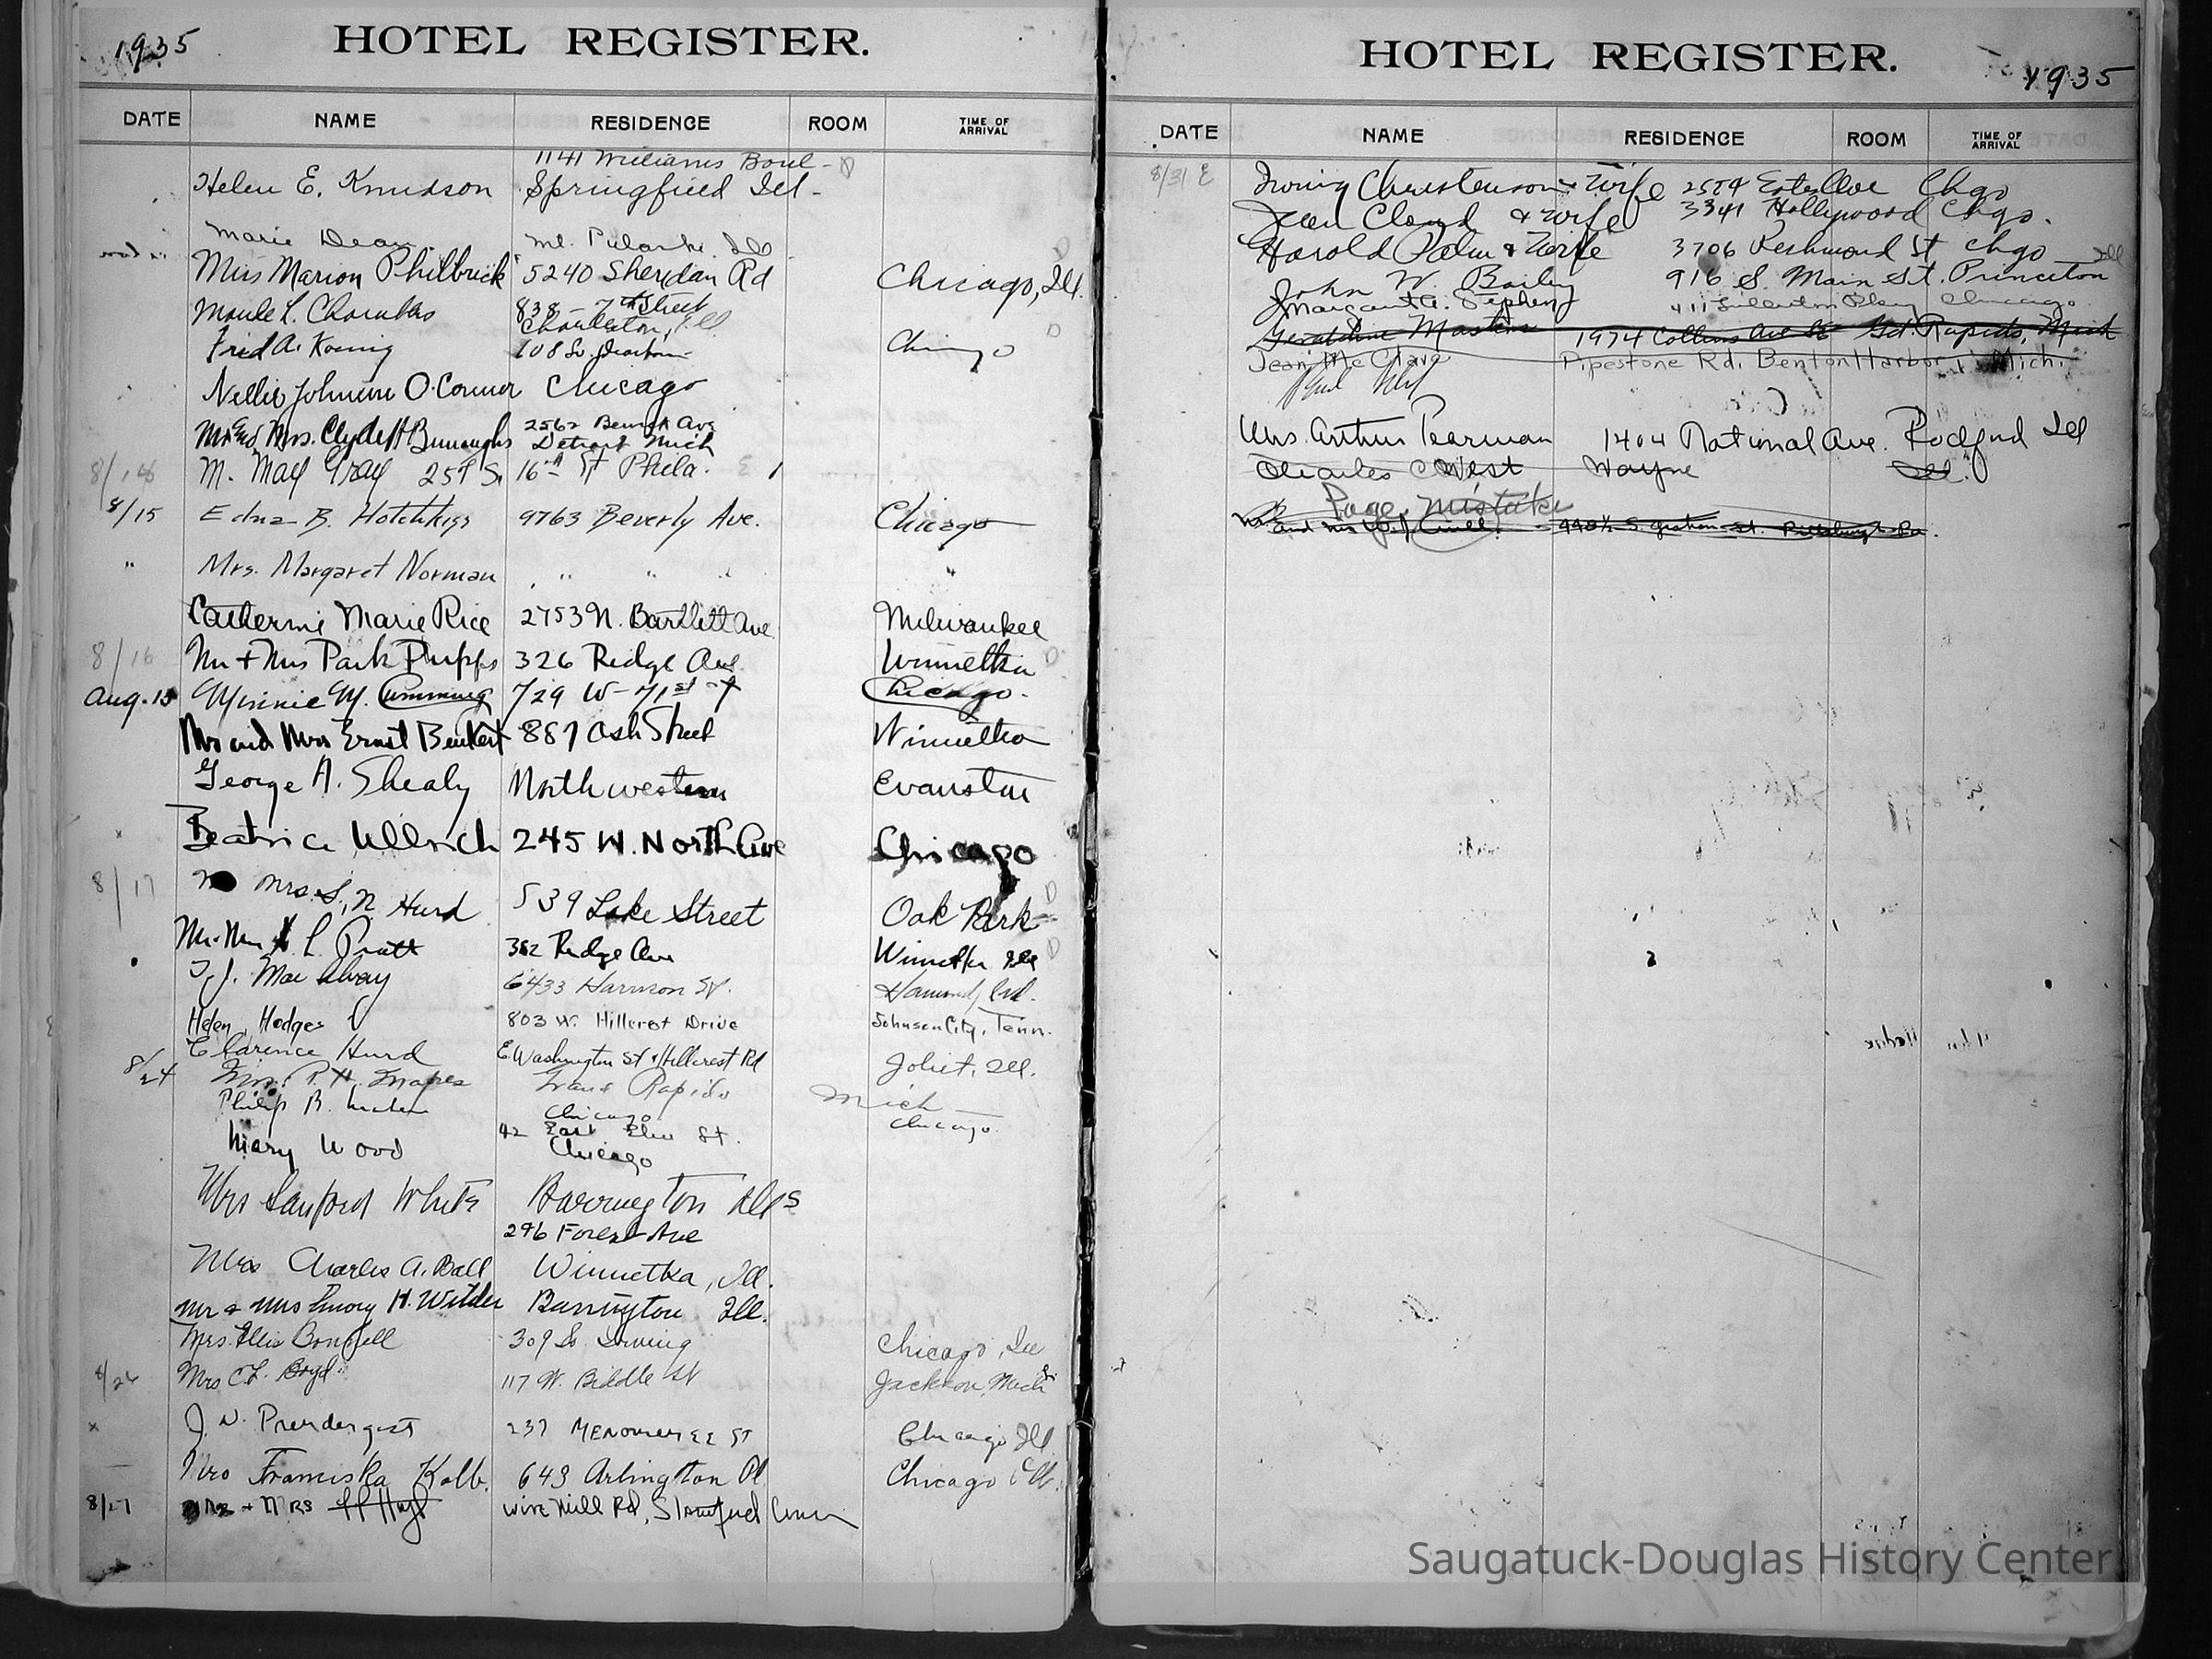 1935
HOTEL REGISTER.
DATE NAME RESIDENCE ROOM TIME OF ARRIVAL
1141 Williams Boul -
Helen E. Knudson Springfield Ill -
Marie Dean Mt. Pulaski Ill
Miss Marion Philbrick 5240 Sheridan Rd Chicago, Ill.
Maude L. Chambers 838 - 7th Street
Charleston, Ill
Fred A. Koenig 108 So. Dearborn Chicago
Nellie Johnson O'Connor Chicago
Mr and Mrs. Clyde H Burroughs 2562 Ave
Detroit Mich
8/14 M. May Gray 251 S. 16th St Phila.
8/15 Edna B. Hotchkiss 9763 Beverly Ave. Chicago
" Mrs. Margaret Norman " " " "
Catherine Marie Rice 2753 N. Bartlett Ave. Milwaukee
8/16 Mr + Mrs Park Phipps 326 Ridge Ave. Winnetka
Aug. 15 Minnie M. Cumming 729 W - 71st St Chicago.
Mr and Mrs Ernst Benkert 887 Ash Street Winnetka
George A. Shealy Northwestern Evanston
Beatrice Ullrich 245 W. North Ave Chicago
8/17 Mrs. S. N. Hurd 539 Lake Street Oak Park
Mr. Mrs L Pratt 362 Ridge Ave Winnetka Ill
T. J. Mac 6433 Harmon St. Hammond, Ind.
Helen Hodges 803 W. Hillcrest Drive Johnson City, Tenn.
Clarence Hurd E. Washington St & Hillcrest Rd Joliet, Ill.
8/24 Mrs. R. H. Mapes Grand Rapids Mich
Philip B. Chicago Chicago
Mary Wood 42 East Elm St.
Chicago
Mrs Sanford White Barrington Ills
296 Forest Ave
Mrs Charles A. Ball Winnetka, Ill.
Mr & Mrs Emory H. Wilder Barrington Ill.
Mrs. Ellis Bonfell 309 So Chicago, Ill
8/26 Mrs C L. Boyd 117 W. Biddle St Jackson, Mich
J. W. Prendergast 237 Menomenee St Chicago Ill
Mrs Franciska Kolb. 643 Arlington Pl Chicago Ill.
8/27 Mr + Mrs Wire Mill Rd, Stamford Conn
1935
HOTEL REGISTER.
DATE NAME RESIDENCE ROOM TIME OF ARRIVAL
8/31 E Irving Christenson & Wife Chgo
Jean Cloyd & Wife 3341 Hollywood Chgo.
Harold Palm & Wife 3706 St Chgo Ill
John W. Bailey 916 S. Main St. Princeton
Margaret A. Stephens 411 Fullerton Pkwy Chicago
Geraldine Masters 1974 Collins Ave SE Gd. Rapids, Mich
Jean McClave Pipestone Rd. Benton Harbor, Mich.
Mrs. Arthur Pearman 1404 National Ave. Rockford Ill
Charles C West Wayne Ill.
Page Mistake
and Mrs S. Graham St. Pittsburgh Pa.
Saugatuck-Douglas History Center